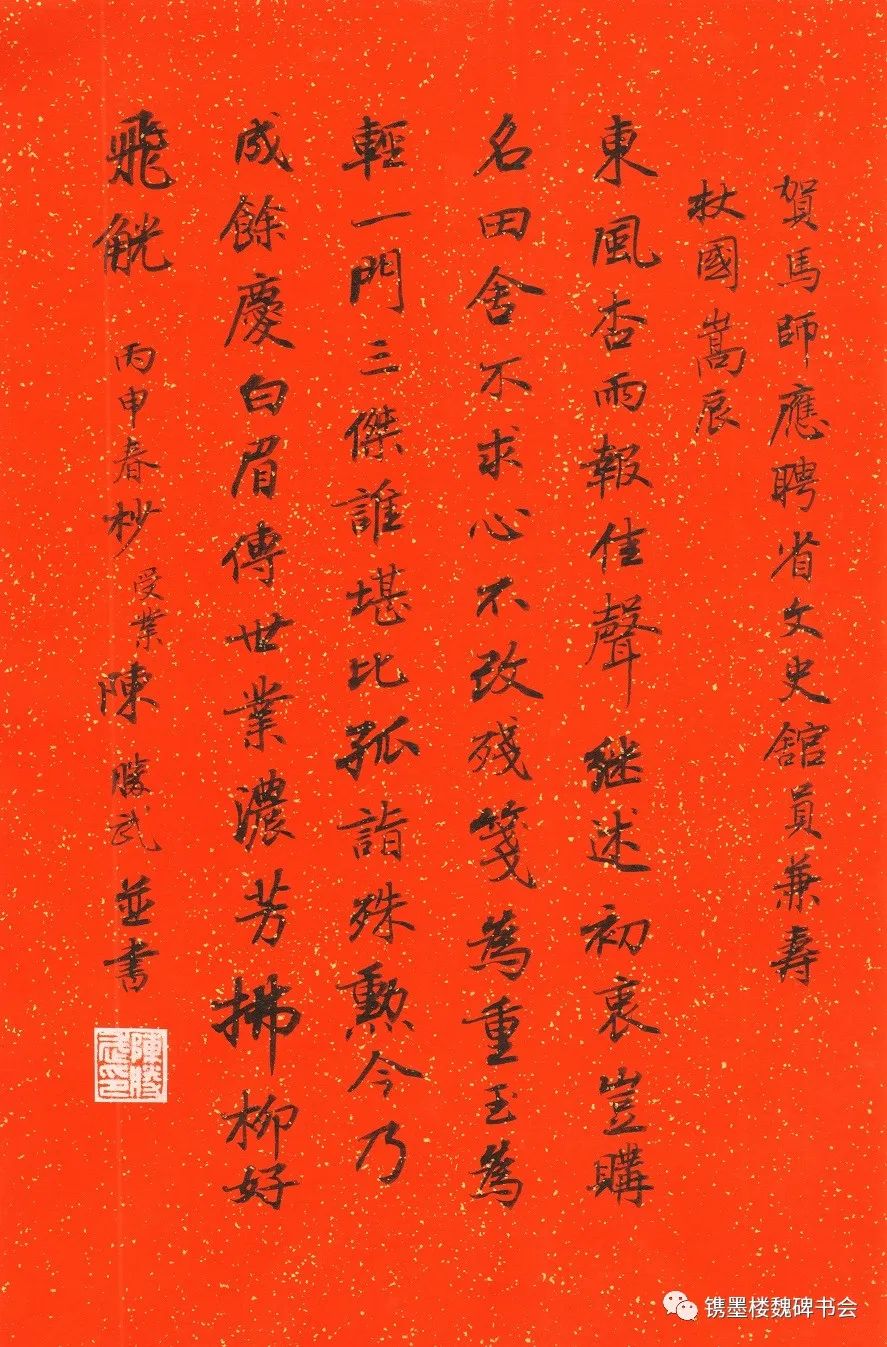 賀馬師應聘省文史舘員兼壽
杖國嵩辰
東風杏雨報佳聲継述初衷豈購
名田舍不求心不改殘箋為重玉為
輕一門三傑誰堪比孤詣殊勳今乃
成餘慶白眉傳世業濃芳拂柳好
飛觥
丙申春杪受業陳勝武並書
陳勝武印
镌墨楼魏碑书会